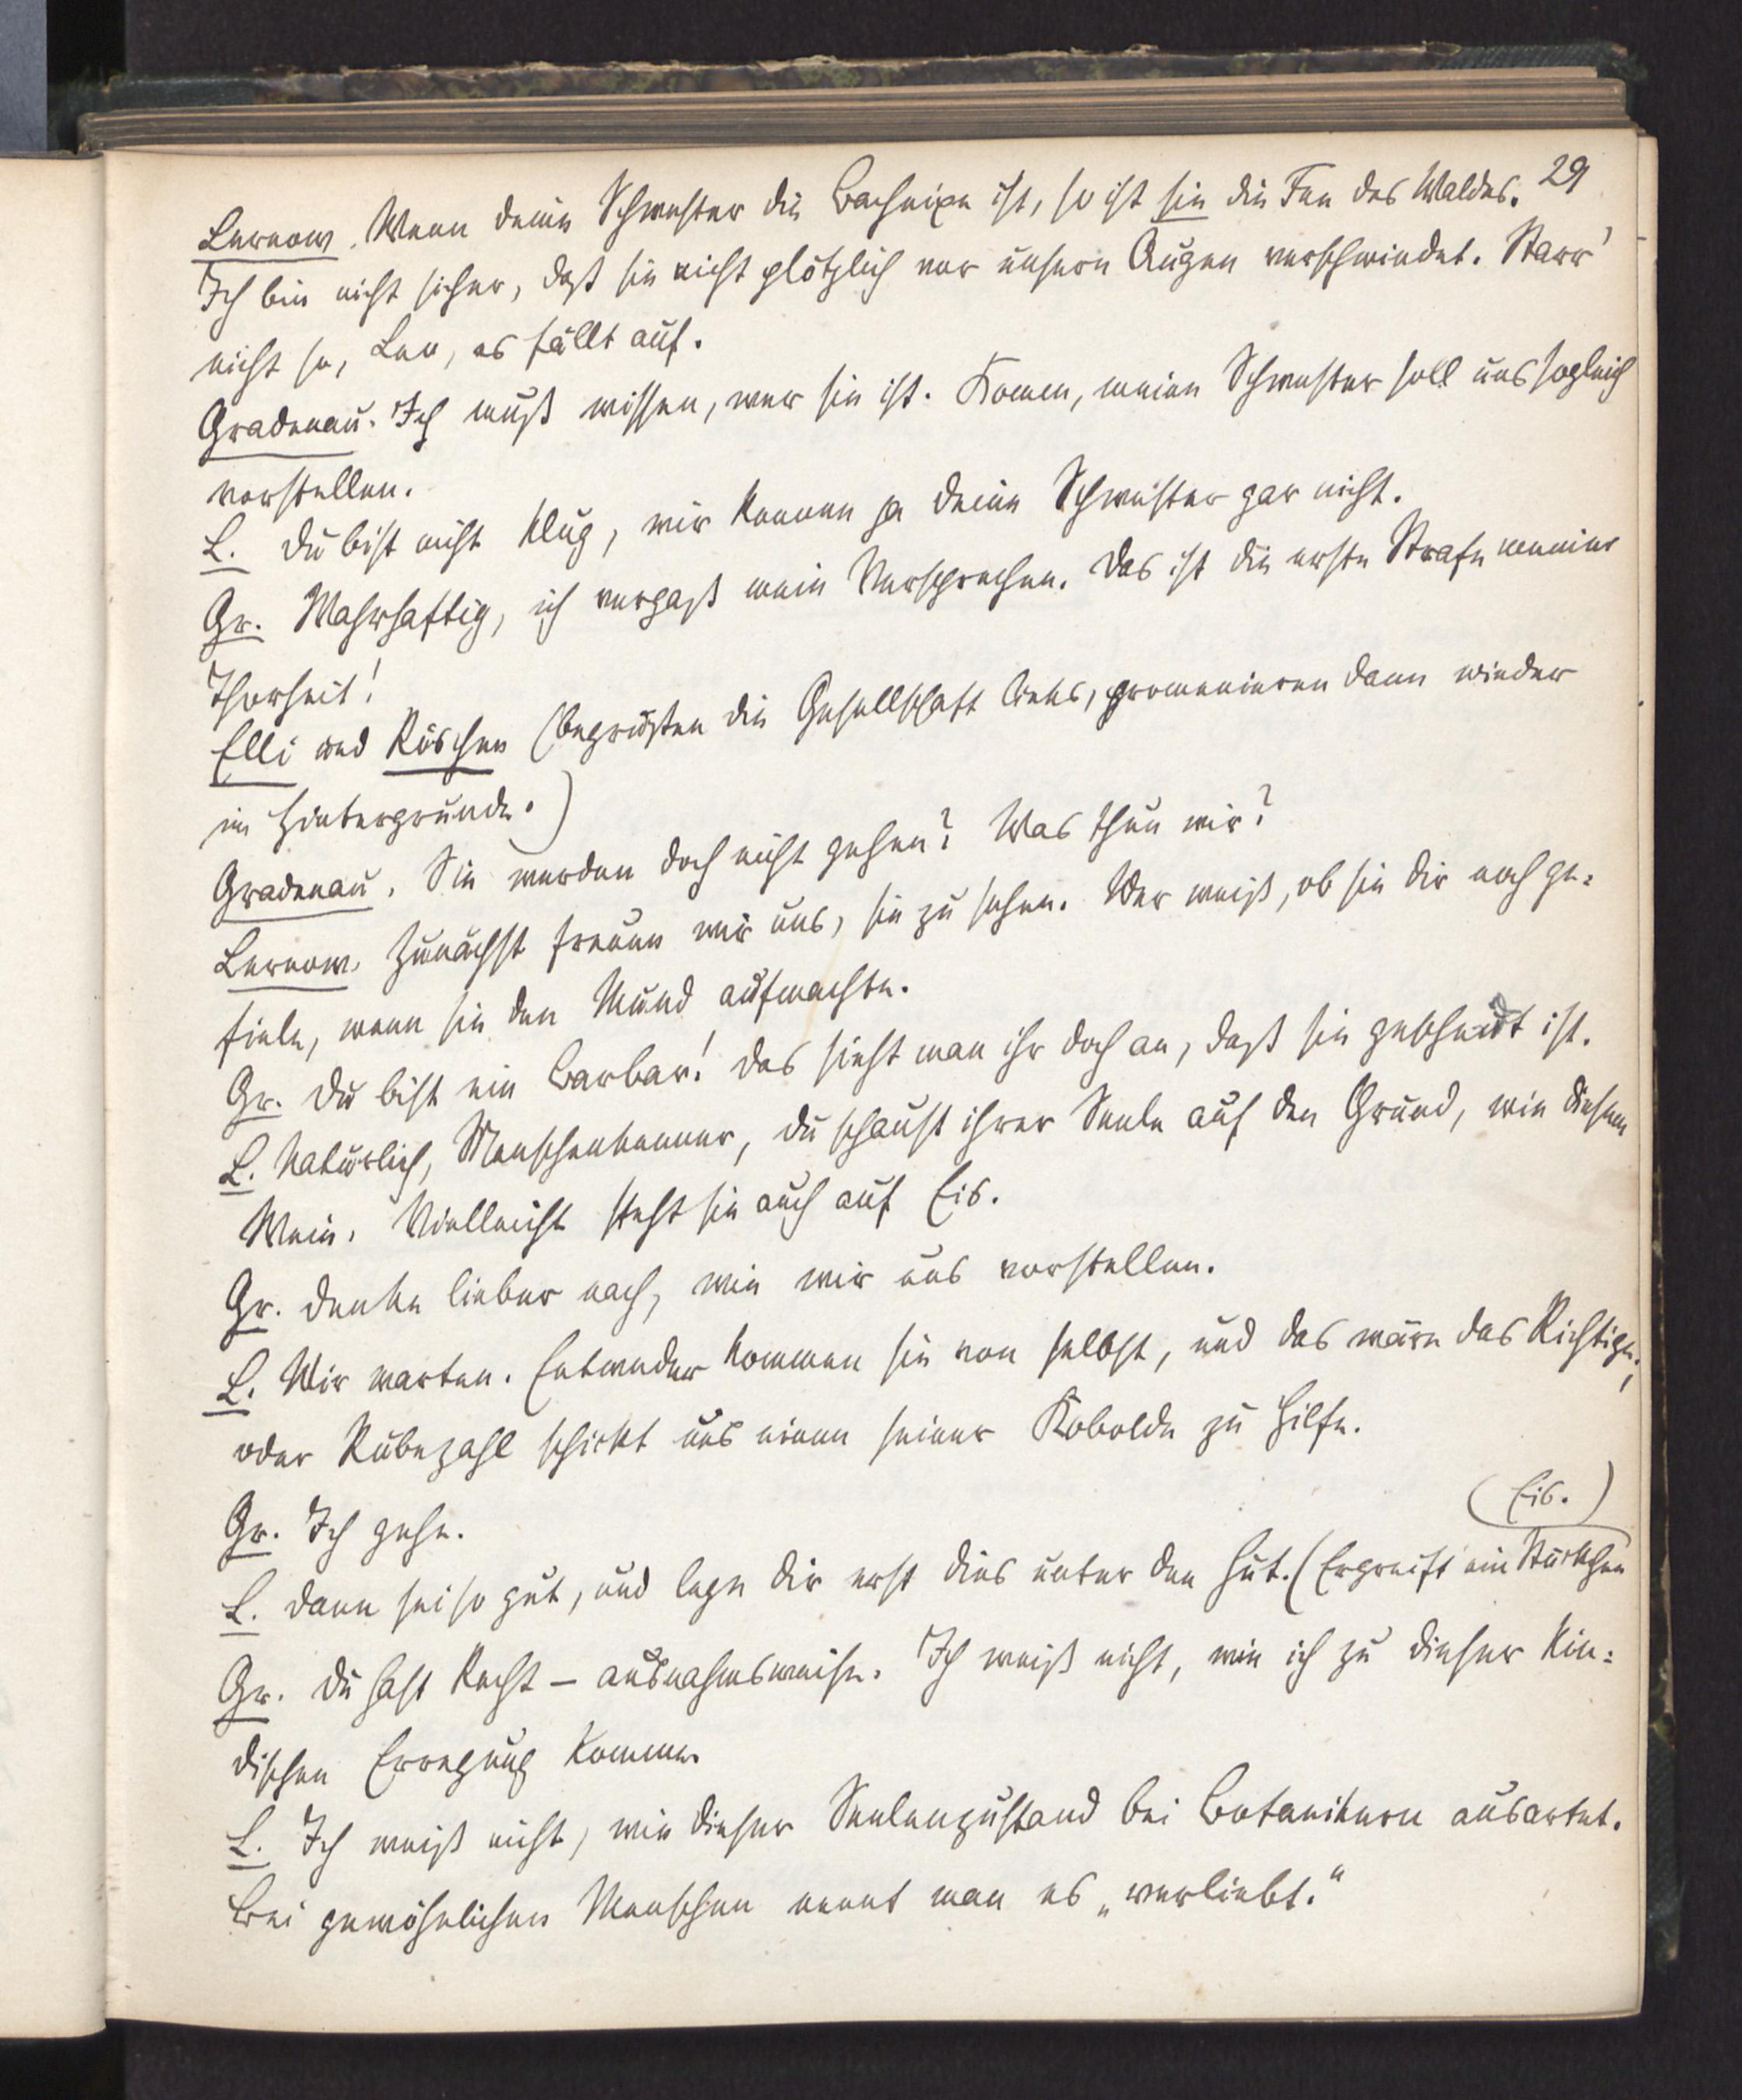 29
Lernow. Wenn deine Schwester die Bachnixe ist, so ist sie die Fee des Waldes.
Ich bin nicht sicher, daß sie nicht plötzlich vor unsern Augen verschwindet. Starr'
nicht so, Leo, es fällt auf.
Gradenau. Ich muß wissen, wer sie ist. Komm, meine Schwester soll uns sogleich
vorstellen.
L. Du bist nicht klug, wir kennen ja deine Schwester gar nicht.
Gr. Wahrhaftig, ich vergaß mein Versprechen. Das ist die erste Strafe meiner
Thorheit!
Elli und Röschen (begrüßten die Gesellschaft links, promenieren dann wieder
im Hintergrunde.)
Gradenau. Sie werden doch nicht gehen? Was thun wir?
Lernow. Zunächst freuen wir uns, sie zu sehen. Wer weiß, ob sie dir noch ge-
fiele, wenn sie den Mund aufmachte.
Gr. Du bist ein Barbar! Das sieht man ihr doch an, daß sie gescheidt ist.
L. Natürlich, Menschenkenner, du schaust ihrer Seele auf den Grund, wie diesem
Wein. Vielleicht steht sie auch auf Eis.
Gr. Denke lieber nach, wie wir uns vorstellen.
L. Wir warten. Entweder kommen sie von selbst, und das wäre das Richtige;
oder Rübezahl schickt uns einen seiner Kobolde zu Hilfe.
Gr. Ich gehe.
L. Dann sei so gut, und lege dir erst dies unter den Hut. (Ergreift ein Stückchen
(Eis.)
Gr. Du hast Recht – ausnahmsweise. Ich weiß nicht, wie ich zu dieser kin-
dischen Erregung komme.
L. Ich weiß nicht, wie dieser Seelenzustand bei Botanikern ausartet.
Bei gewöhnlichen Menschen nennt man es „verliebt."